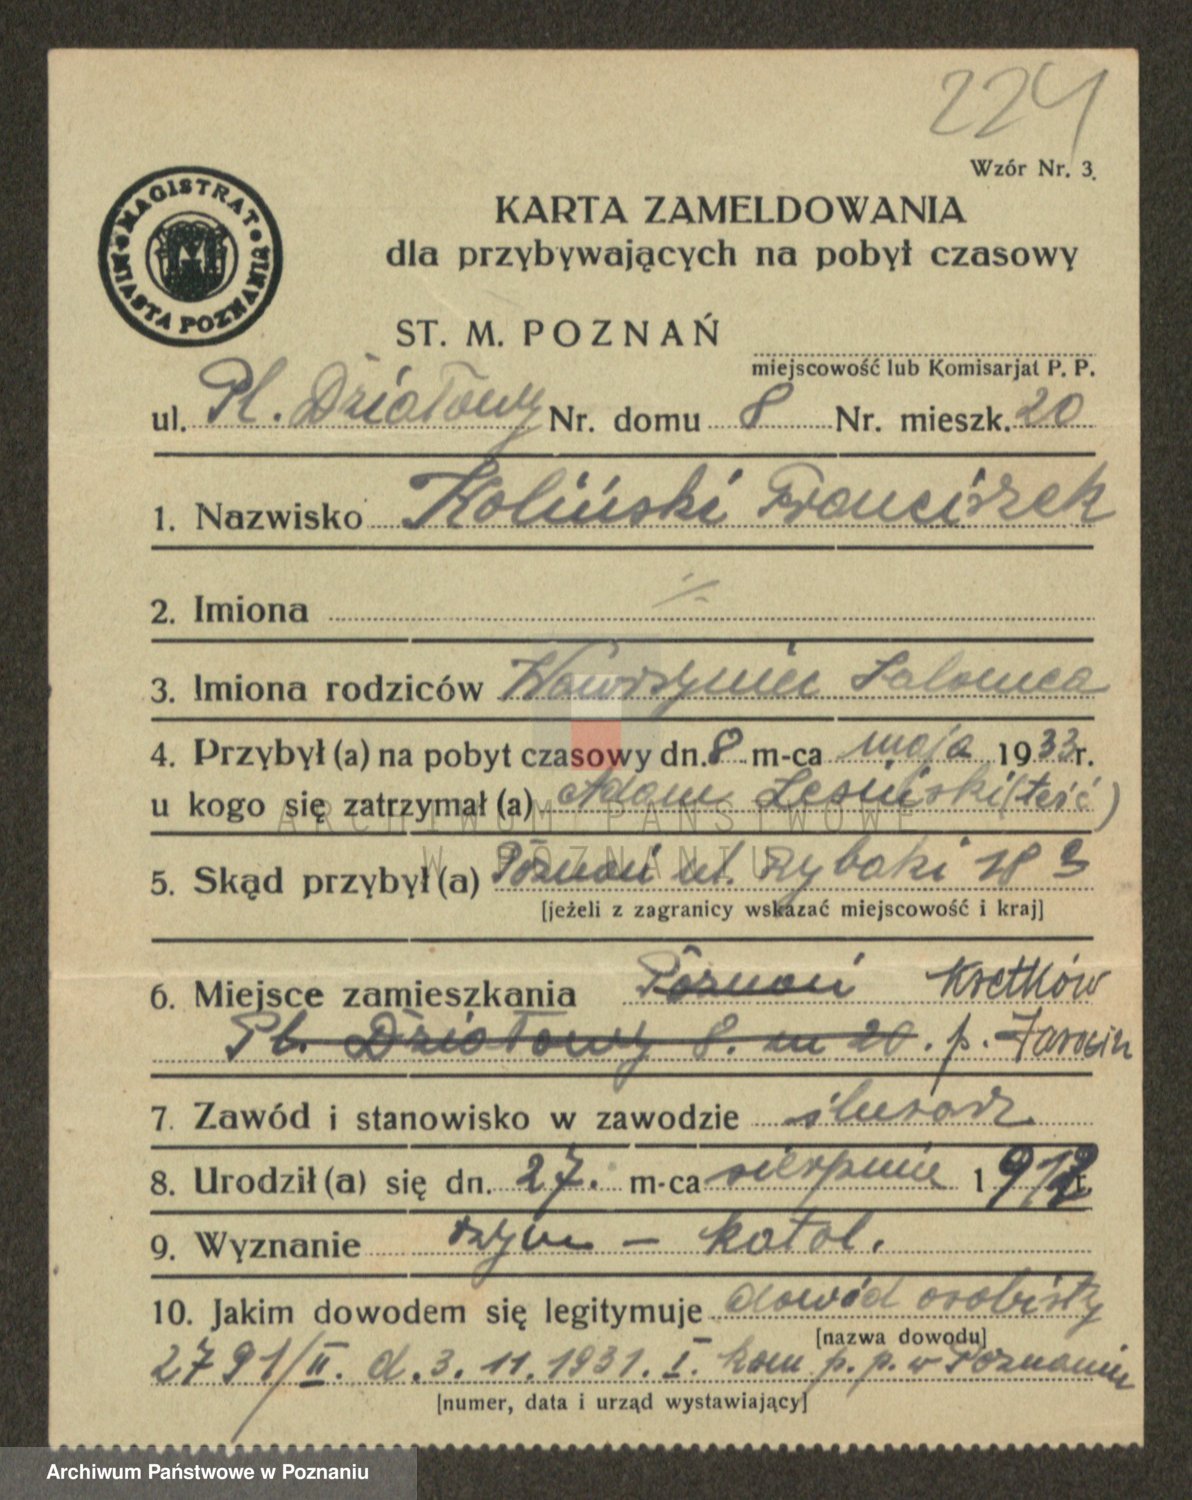 224
Wzór Nr. 3.
MAGISTRAT MIASTA POZNANIA
KARTA ZAMELDOWANIA
dla przybywających na pobyt czasowy
ST. M. POZNAŃ
miejscowość lub Komisarjat P. P.
ul. Pl. Działowy Nr. domu 8 Nr. mieszk. 20
1. Nazwisko Koliński Franciszek
2. Imiona
3. Imiona rodziców Wawrzyniec Salomea
4. Przybył (a) na pobyt czasowy dn. 8 m-ca maja 1933 r.
u kogo się zatrzymał (a) Adam Lesiński (teść)
ARCHIWUM PAŃSTWOWE
W POZNANIU
5. Skąd przybył (a) Poznań ul. Rybaki 18
[jeżeli z zagranicy wskazać miejscowość i kraj]
6. Miejsce zamieszkania Poznań Kretków
Pl. Działowy 8. m 20. p. Jarocin
7. Zawód i stanowisko w zawodzie ślusarz
8. Urodził (a) się dn. 27. m-ca sierpnia 1912 r.
9. Wyznanie rzym - katol.
10. Jakim dowodem się legitymuje dowód osobisty
[nazwa dowodu]
2791/II. d. 3. 11. 1931. I. kom p. p. w Poznaniu
[numer, data i urząd wystawiający]
Archiwum Państwowe w Poznaniu